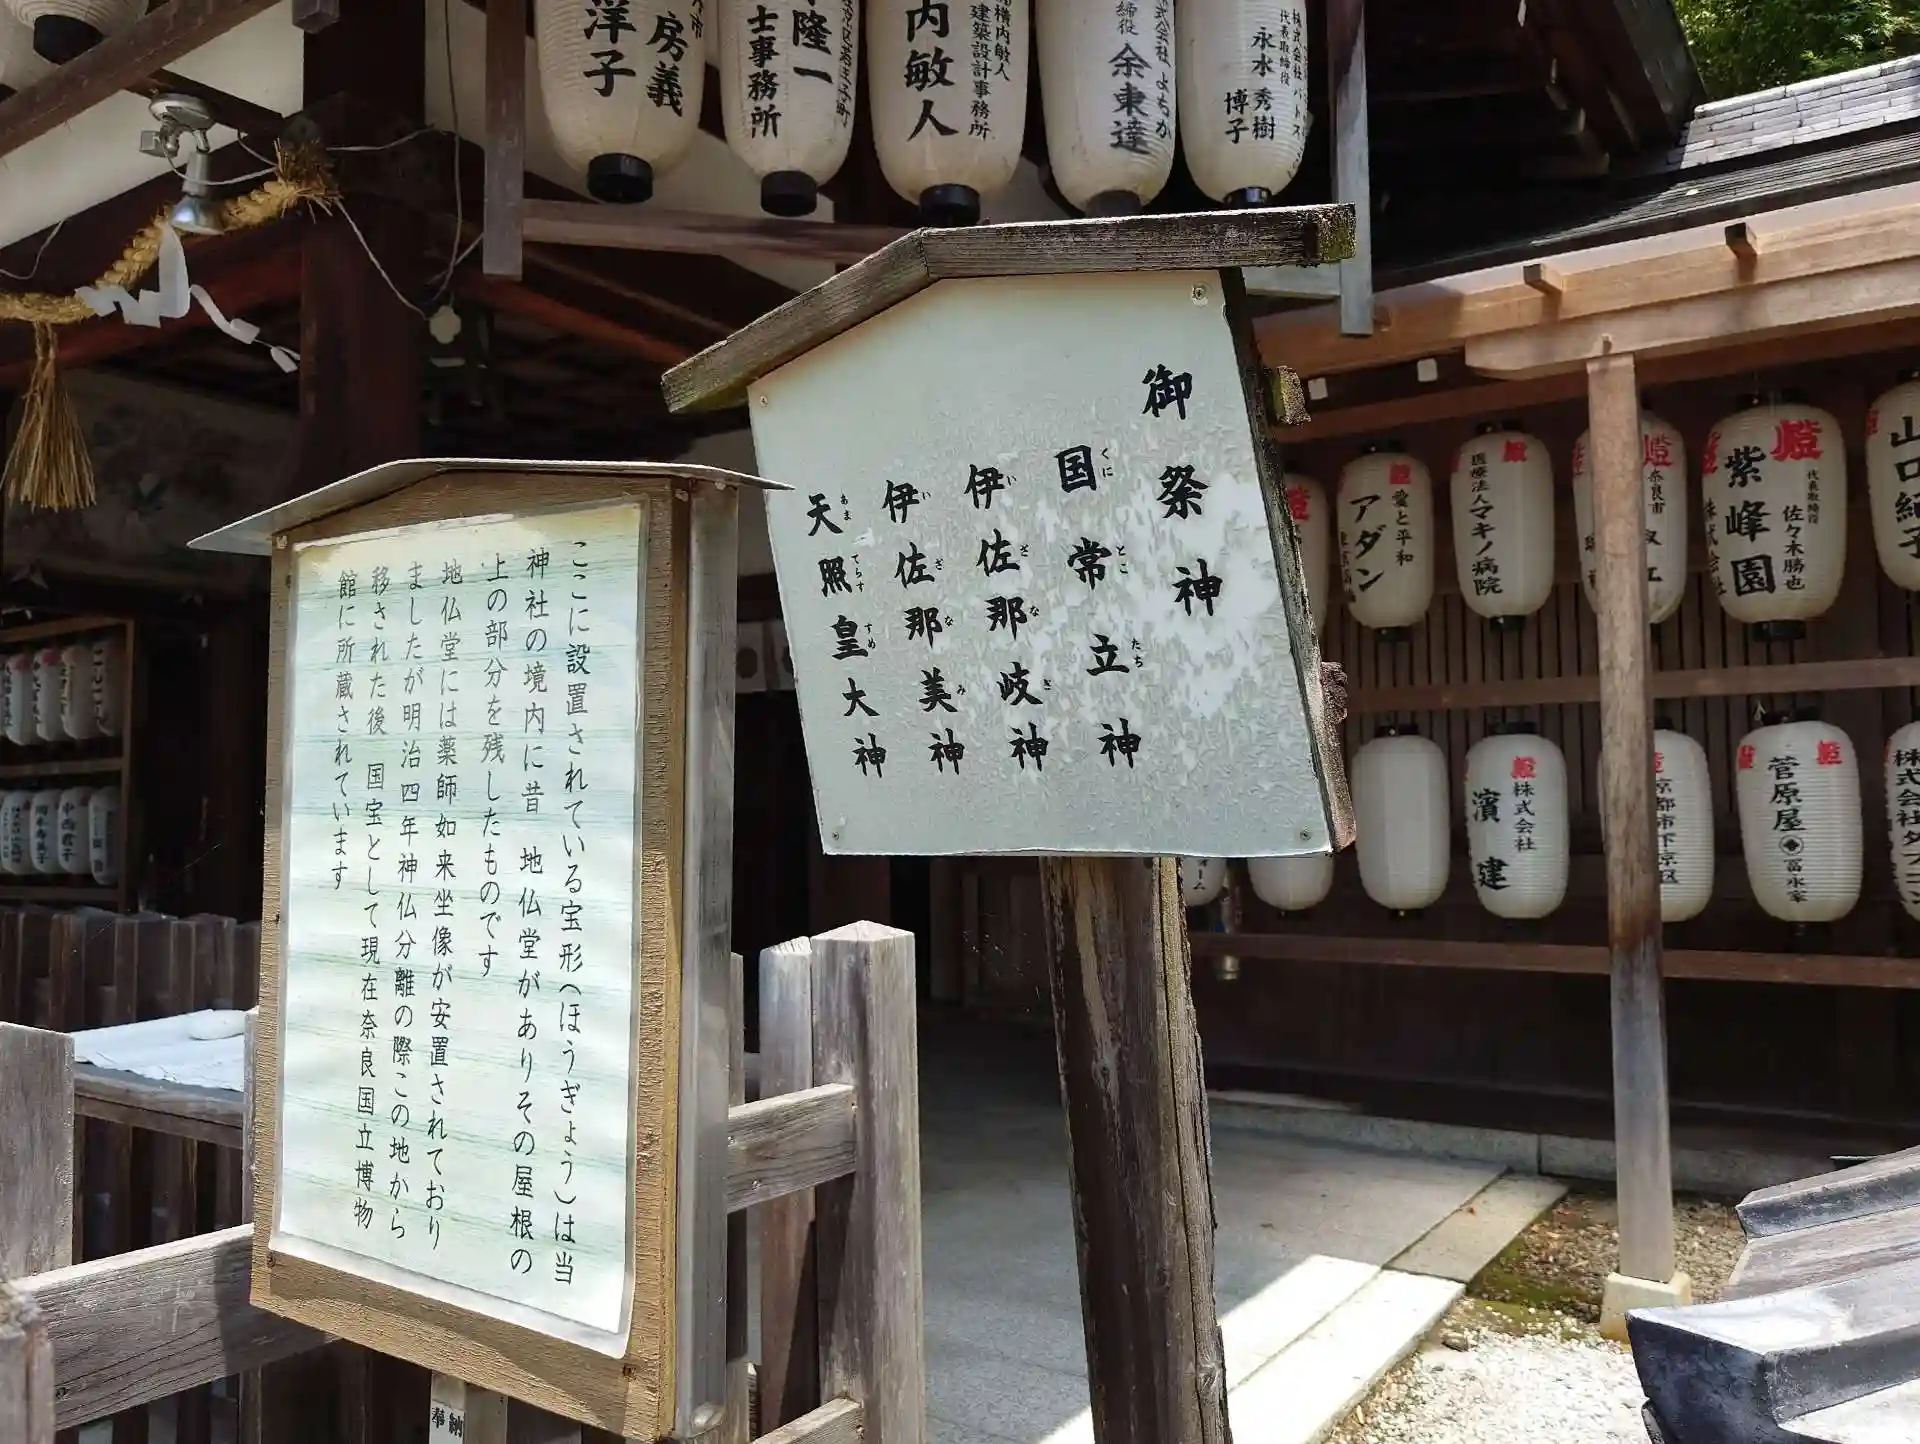 御祭神
国常立神
くにとこたち
伊佐那岐神
いざなぎ
伊佐那美神
いざなみ
天照皇大神
あまてらすすめ
ここに設置されている宝形(ほうぎょう)は当
神社の境内に昔 地仏堂がありその屋根の
上の部分を残したものです
地仏堂には薬師如来坐像が安置されており
ましたが明治四年神仏分離の際この地から
移された後 国宝として現在奈良国立博物
館に所蔵されています
永水 秀樹
博子
代表取締役
余東達
内敏人
建築設計事務所
隆一
士事務所
房義
洋子
愛と平和
アダン
燈
医療法人マキノ病院
燈
奈良市
燈
代表取締役
佐々木勝也
紫峰園
株式会社
山口
燈
株式会社
濱建
燈
京都市下京区
燈
菅原屋
冨永家
株式会社
奉納